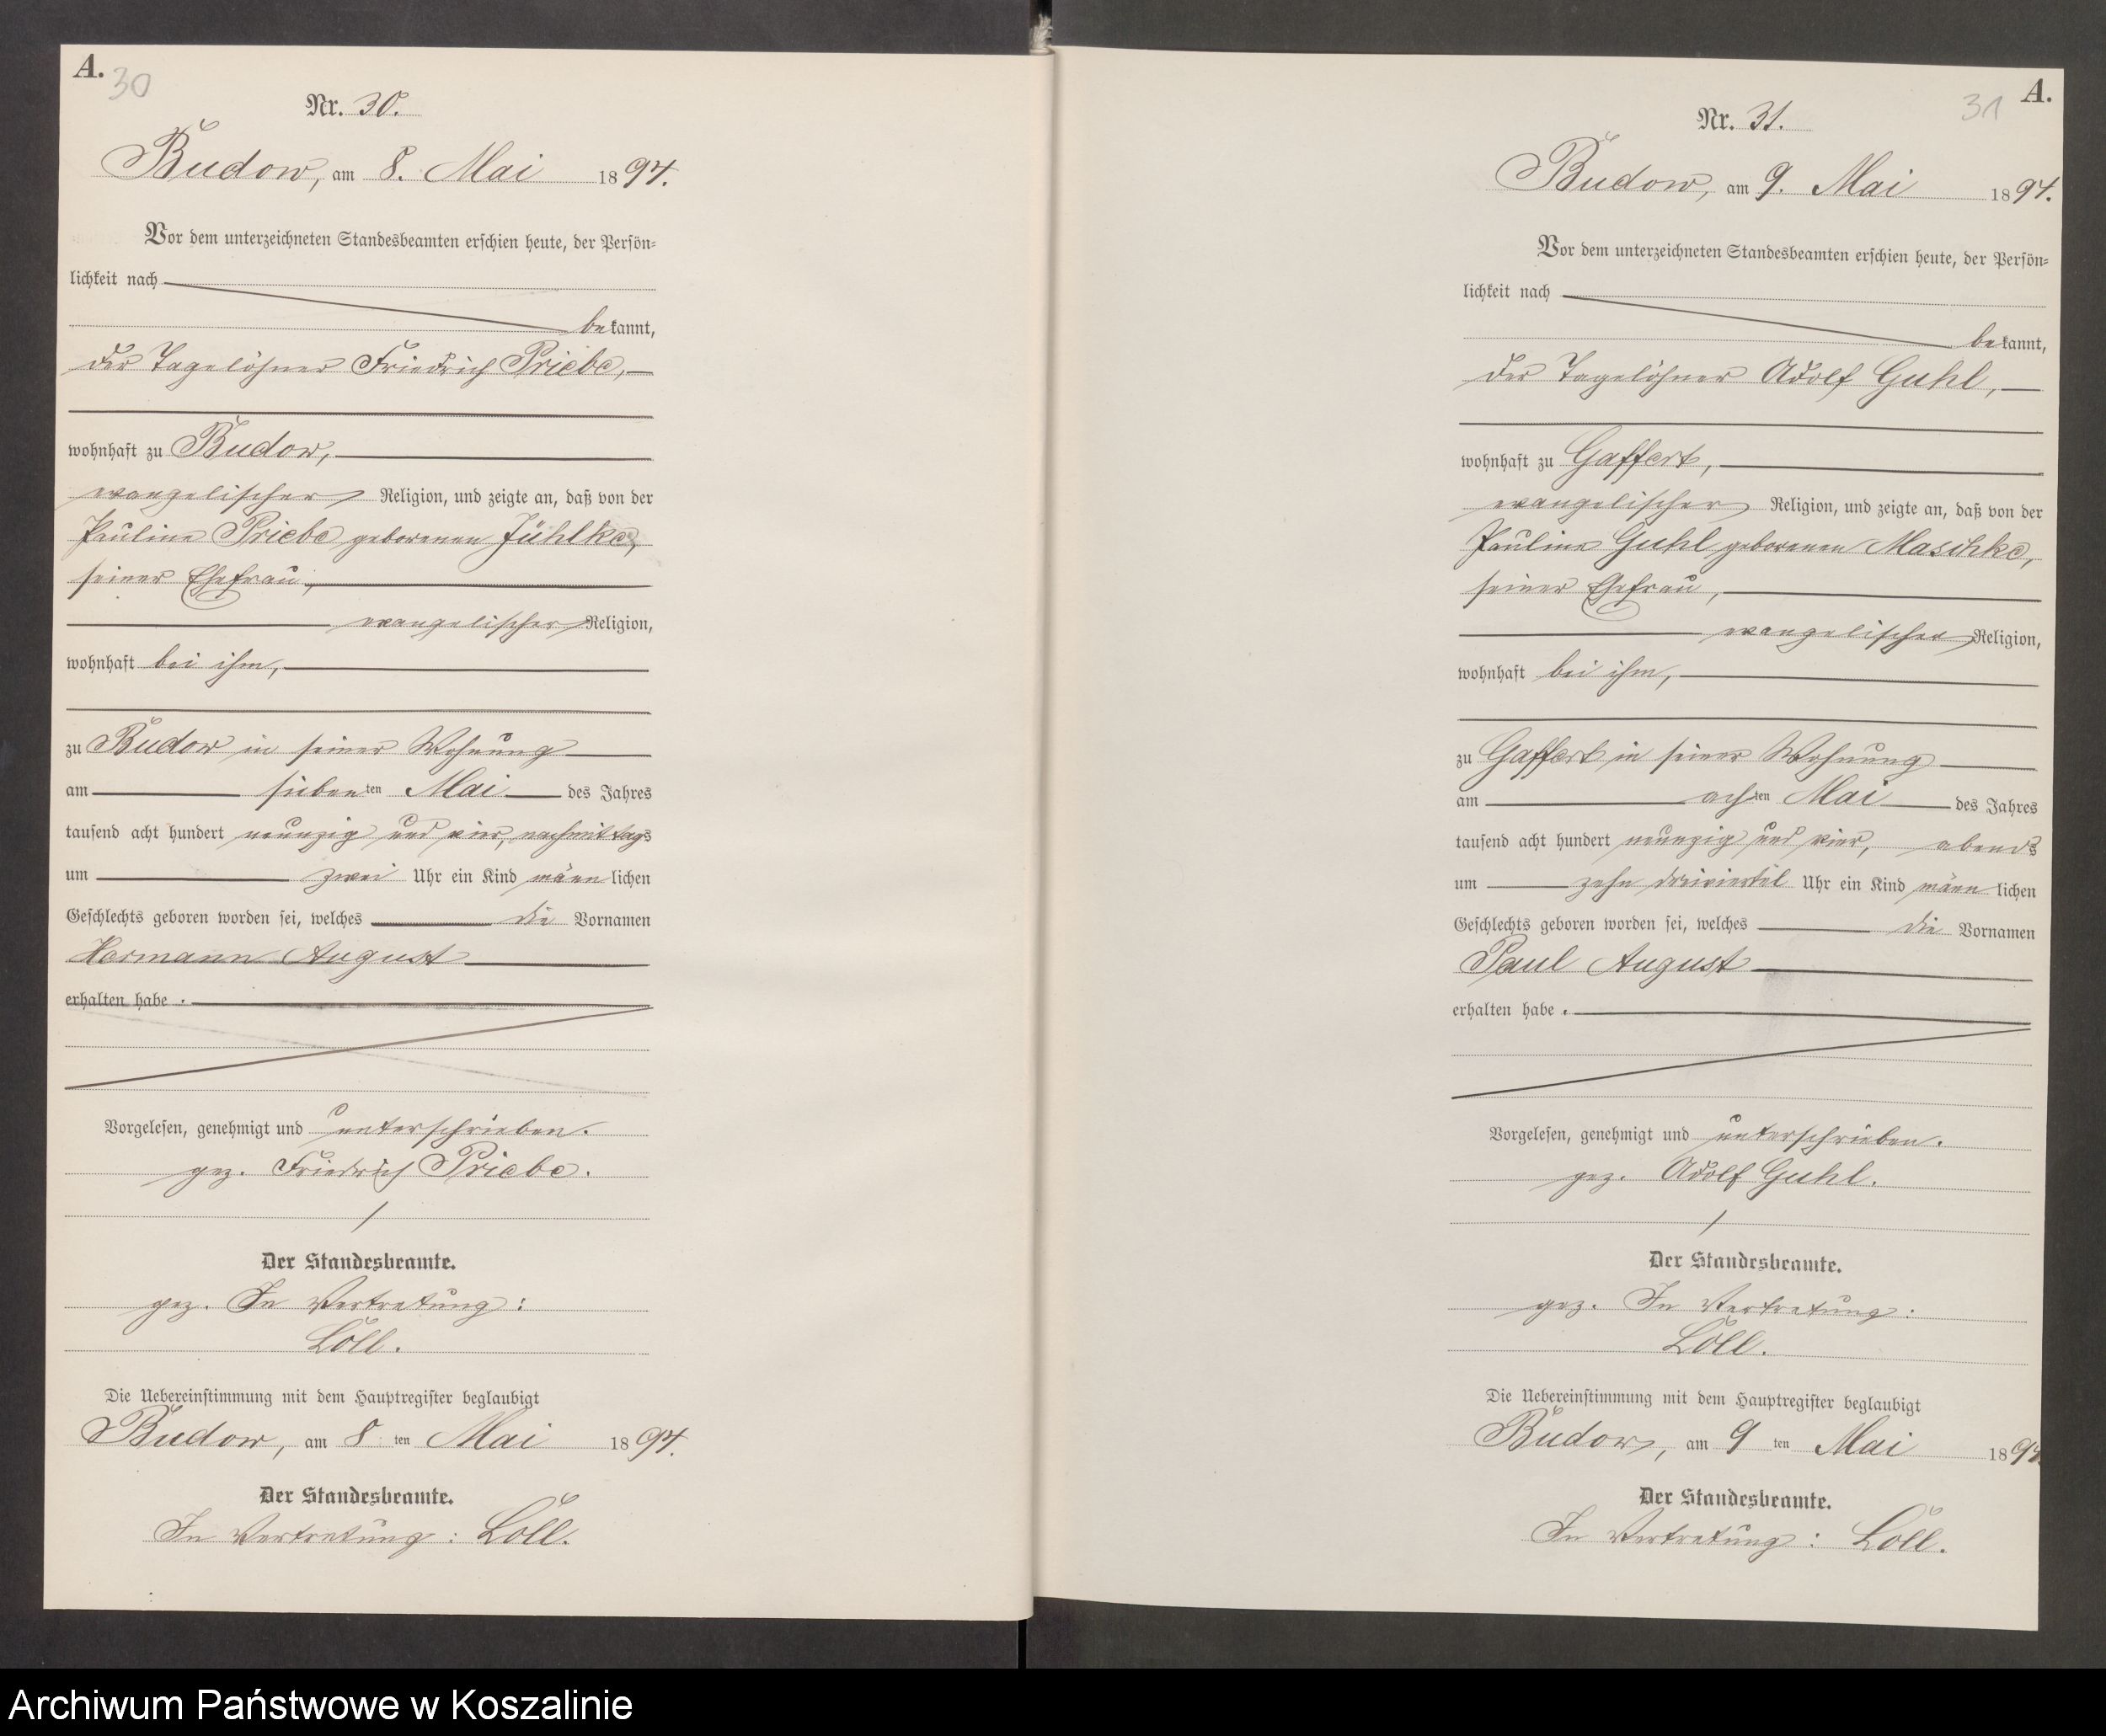 A.
30
Nr. 30.
Budow, am 8. Mai 1894.
Vor dem unterzeichneten Standesbeamten erschien heute, der Persön-
lichkeit nach
bekannt,
der Tagelöhner Friedrich Priebe,
wohnhaft zu Budow,
evangelischer Religion, und zeigte an, daß von der
Pauline Priebe geborenen Jühlke,
seiner Ehefrau,
evangelischer Religion,
wohnhaft bei ihm,
zu Budow in seiner Wohnung
am siebenten Mai des Jahres
tausend acht hundert neunzig und vier, nachmittags
um zwei Uhr ein Kind männlichen
Geschlechts geboren worden sei, welches die Vornamen
Hermann August
erhalten habe.
Vorgelesen, genehmigt und unterschrieben.
gez. Friedrich Priebe.
Der Standesbeamte.
gez. In Vertretung:
Löll.
Die Uebereinstimmung mit dem Hauptregister beglaubigt
Budow, am 8ten Mai 1894.
Der Standesbeamte.
In Vertretung: Löll.
A.
31
Nr. 31.
Budow, am 9. Mai 1894.
Vor dem unterzeichneten Standesbeamten erschien heute, der Persön-
lichkeit nach
bekannt,
der Tagelöhner Adolf Guhl,
wohnhaft zu Gaffert,
evangelischer Religion, und zeigte an, daß von der
Pauline Guhl geborenen Maschke,
seiner Ehefrau,
evangelischer Religion,
wohnhaft bei ihm,
zu Gaffert in seiner Wohnung
am achten Mai des Jahres
tausend acht hundert neunzig und vier, abends
um zehn dreiviertel Uhr ein Kind männlichen
Geschlechts geboren worden sei, welches die Vornamen
Paul August
erhalten habe.
Vorgelesen, genehmigt und unterschrieben.
gez. Adolf Guhl.
Der Standesbeamte.
gez. In Vertretung:
Löll.
Die Uebereinstimmung mit dem Hauptregister beglaubigt
Budow, am 9ten Mai 1894.
Der Standesbeamte.
In Vertretung: Löll.
Archiwum Państwowe w Koszalinie